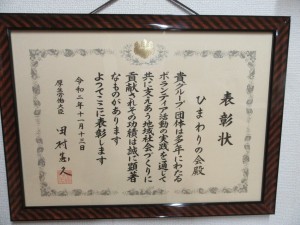 表彰状
ひまわりの会殿
貴グループ団体は多年にわたる
ボランティア活動の実践を通して
共に支えあう地域社会づくりに
貢献されその功績は誠に顕著
なものがあります
よってここに表彰します
令和二年十一月十三日
厚生労働大臣
田村憲久